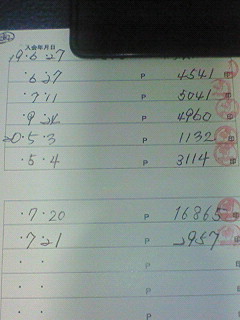 入会年月日
19・6・27
・6・27 P 4541 印
・7・11 P 5041 印
・9・ P 4960 印
20・5・3 P 1132 印
・5・4 P 3114 印
・7・20 P 16865 印
・7・21 P 2957 印
・ ・ P 印
・ ・ P 印
・ ・ P 印